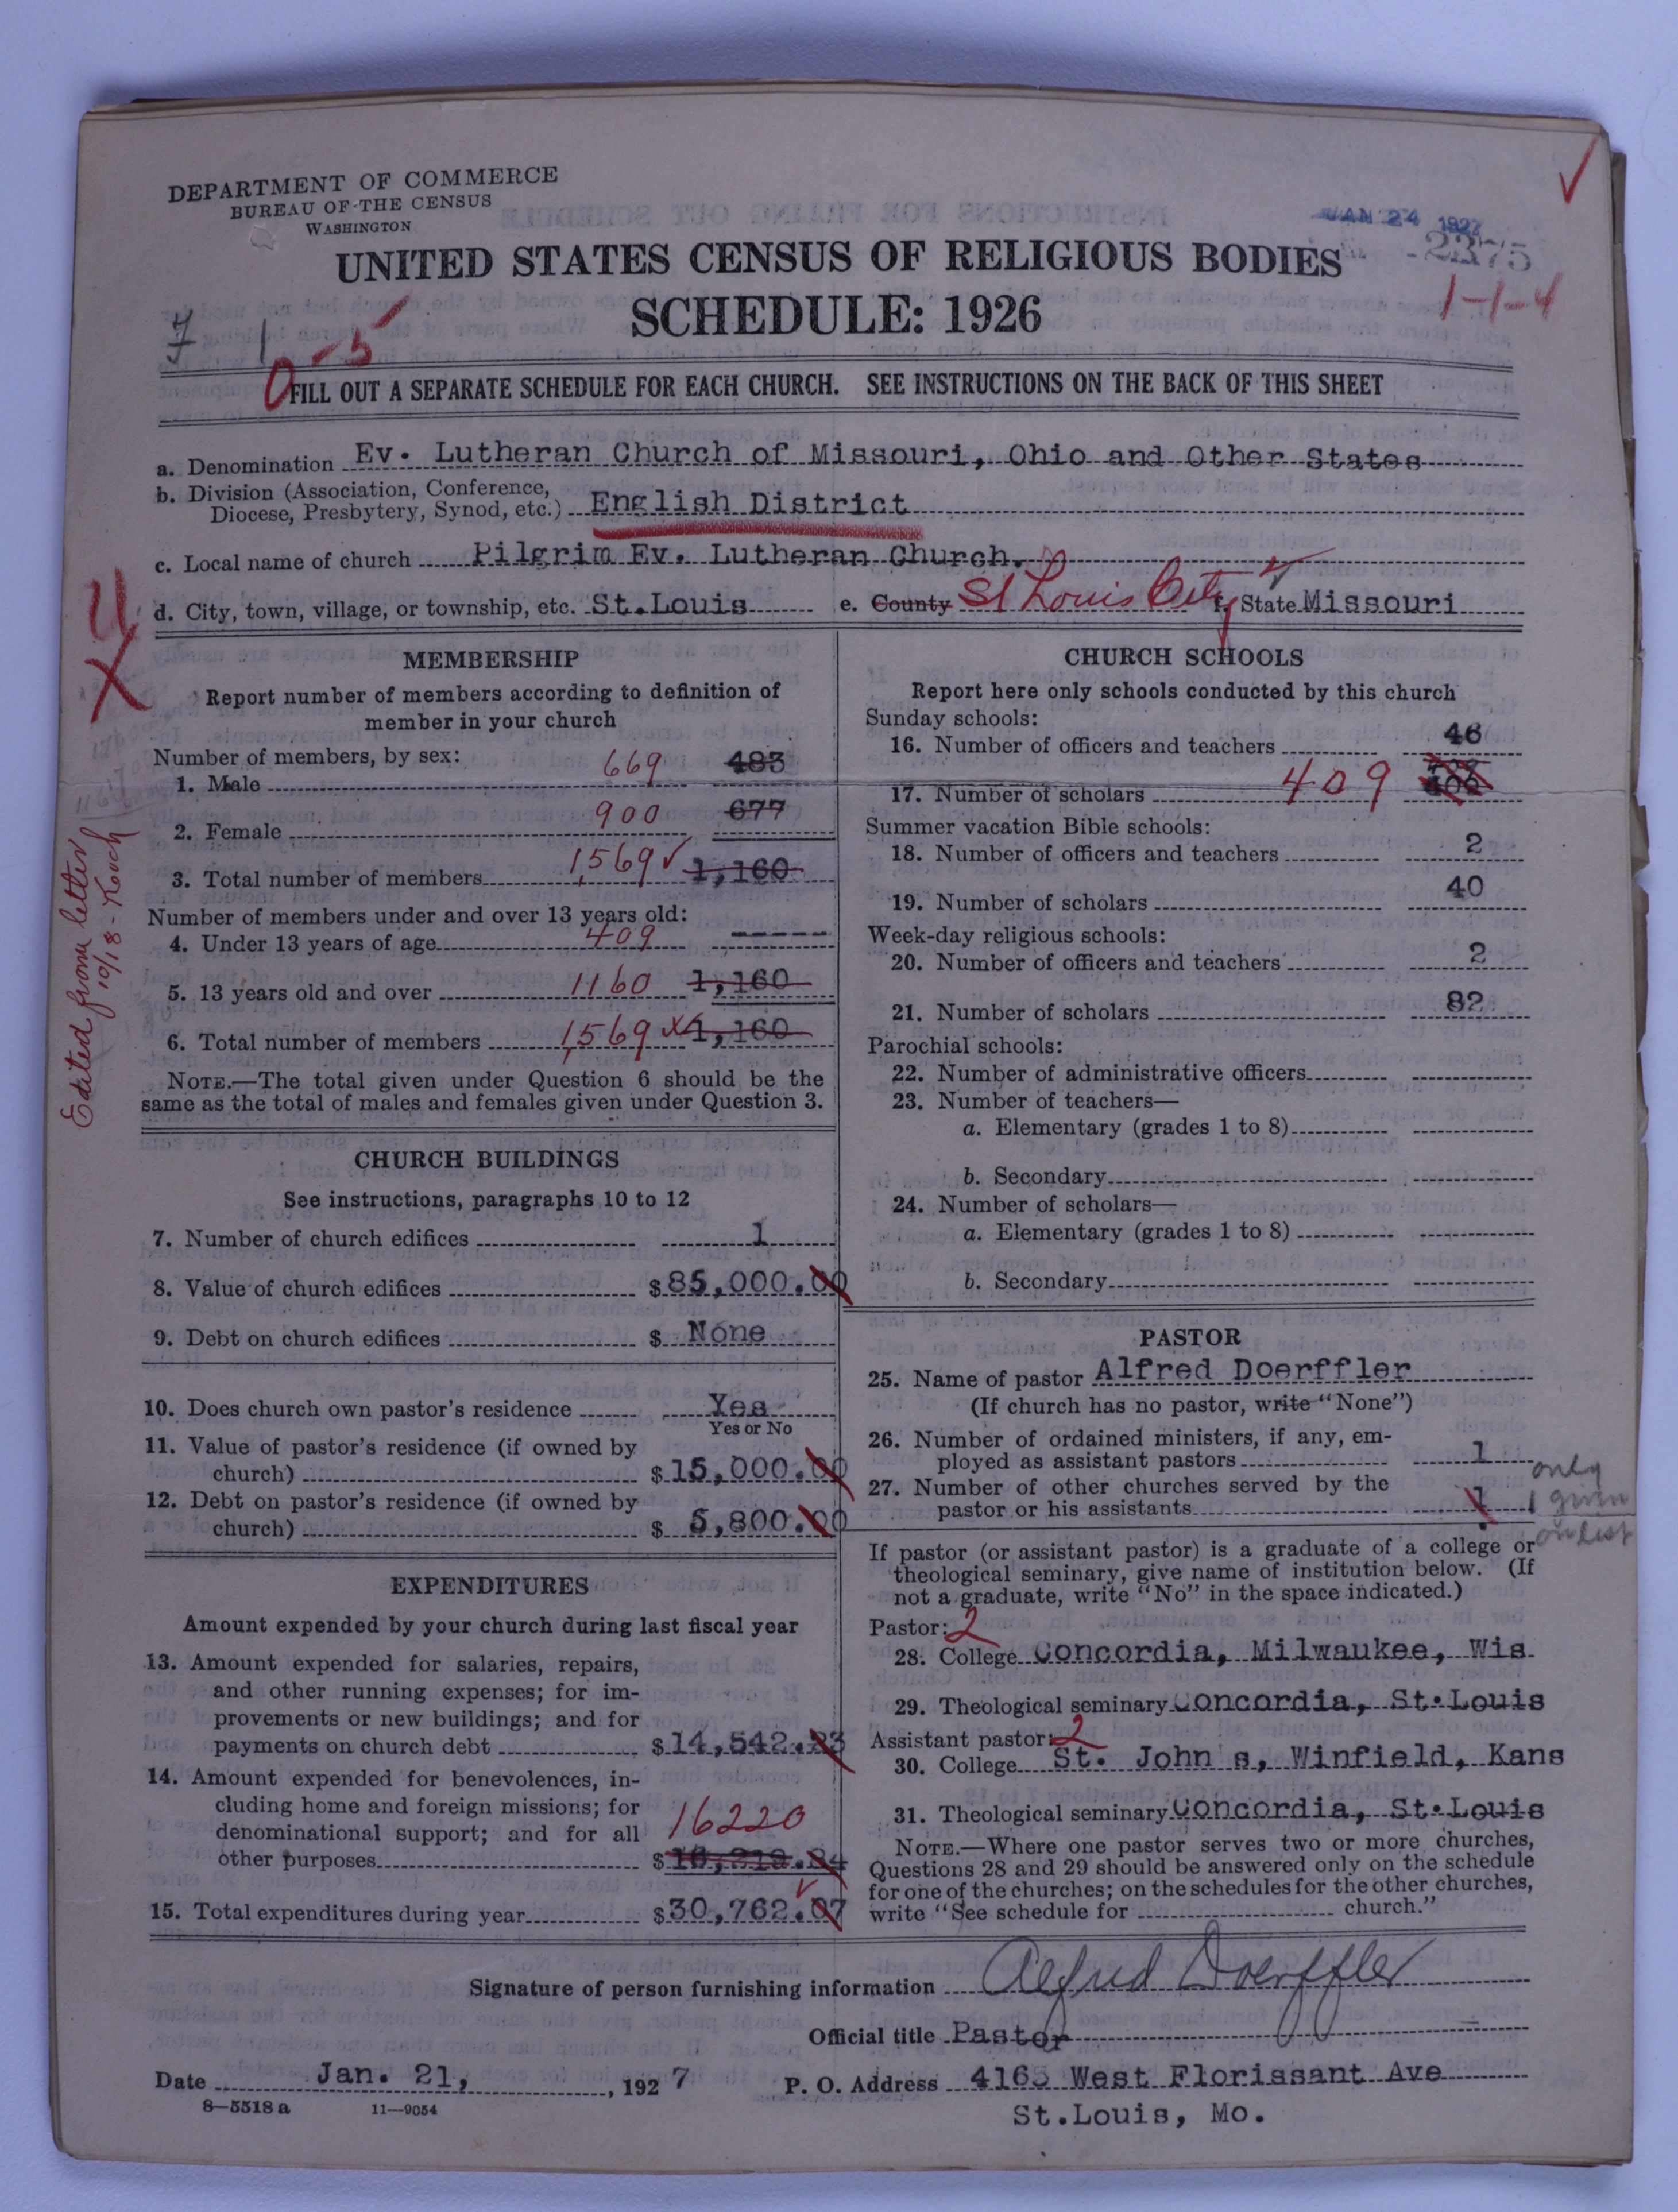 DEPARTMENT OF COMMERCE
BUREAU OF THE CENSUS
WASHINGTON
JAN 24 1927
UNITED STATES CENSUS OF RELIGIOUS BODIES
SCHEDULE: 1926
1-1-4
7 1
0-5
FILL OUT A SEPARATE SCHEDULE FOR EACH CHURCH. SEE INSTRUCTIONS ON THE BACK OF THIS SHEET
a. Denomination Ev. Lutheran Church of Missouri, Ohio and Other States
b. Division (Association, Conference, Diocese, Presbytery, Synod, etc.) English District
c. Local name of church Pilgrim Ev. Lutheran Church.
d. City, town, village, or township, etc. St.Louis e. County St Louis City f. State Missouri
4
X
Edited from letter
10/18-Kouch
MEMBERSHIP
Report number of members according to definition of
member in your church
Number of members, by sex:
1. Male 669 483
2. Female 900 677
3. Total number of members 1,569 1,160
Number of members under and over 13 years old:
4. Under 13 years of age 409 -----
5. 13 years old and over 1160 1,160
6. Total number of members 1,569 1,160
NOTE.—The total given under Question 6 should be the
same as the total of males and females given under Question 3.
CHURCH BUILDINGS
See instructions, paragraphs 10 to 12
7. Number of church edifices 1
8. Value of church edifices $85,000.00
9. Debt on church edifices $ None
10. Does church own pastor's residence Yes
Yes or No
11. Value of pastor's residence (if owned by
church) $15,000.00
12. Debt on pastor's residence (if owned by
church) $ 5,800.00
EXPENDITURES
Amount expended by your church during last fiscal year
13. Amount expended for salaries, repairs,
and other running expenses; for im-
provements or new buildings; and for
payments on church debt $14,542.23
14. Amount expended for benevolences, in-
cluding home and foreign missions; for
denominational support; and for all 16220
other purposes $16,219.84
15. Total expenditures during year $30,762.07
CHURCH SCHOOLS
Report here only schools conducted by this church
Sunday schools:
16. Number of officers and teachers 46
17. Number of scholars 409
Summer vacation Bible schools:
18. Number of officers and teachers 2
19. Number of scholars 40
Week-day religious schools:
20. Number of officers and teachers 2
21. Number of scholars 82
Parochial schools:
22. Number of administrative officers
23. Number of teachers—
a. Elementary (grades 1 to 8)
b. Secondary
24. Number of scholars—
a. Elementary (grades 1 to 8)
b. Secondary
PASTOR
25. Name of pastor Alfred Doerffler
(If church has no pastor, write "None")
26. Number of ordained ministers, if any, em-
ployed as assistant pastors 1
27. Number of other churches served by the
pastor or his assistants 1
only
1 given
on list
If pastor (or assistant pastor) is a graduate of a college or
theological seminary, give name of institution below. (If
not a graduate, write "No" in the space indicated.)
Pastor: 2
28. College Concordia, Milwaukee, Wis
29. Theological seminary Concordia, St.Louis
Assistant pastor: 2
30. College St. John's, Winfield, Kans
31. Theological seminary Concordia, St.Louis
NOTE.—Where one pastor serves two or more churches,
Questions 28 and 29 should be answered only on the schedule
for one of the churches; on the schedules for the other churches,
write "See schedule for church."
Signature of person furnishing information Alfred Doerffler
Official title Pastor
Date Jan. 21, , 1927 P. O. Address 4165 West Florissant Ave
8-5518 a 11-9054 St.Louis, Mo.